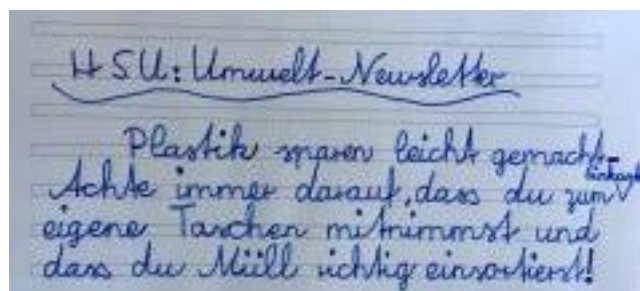 HSU: Umwelt-Newsletter
Plastik sparen leicht gemacht-
Achte immer darauf, dass du zum Einkauf
eigene Taschen mitnimmst und
dass du Müll richtig einsortierst!